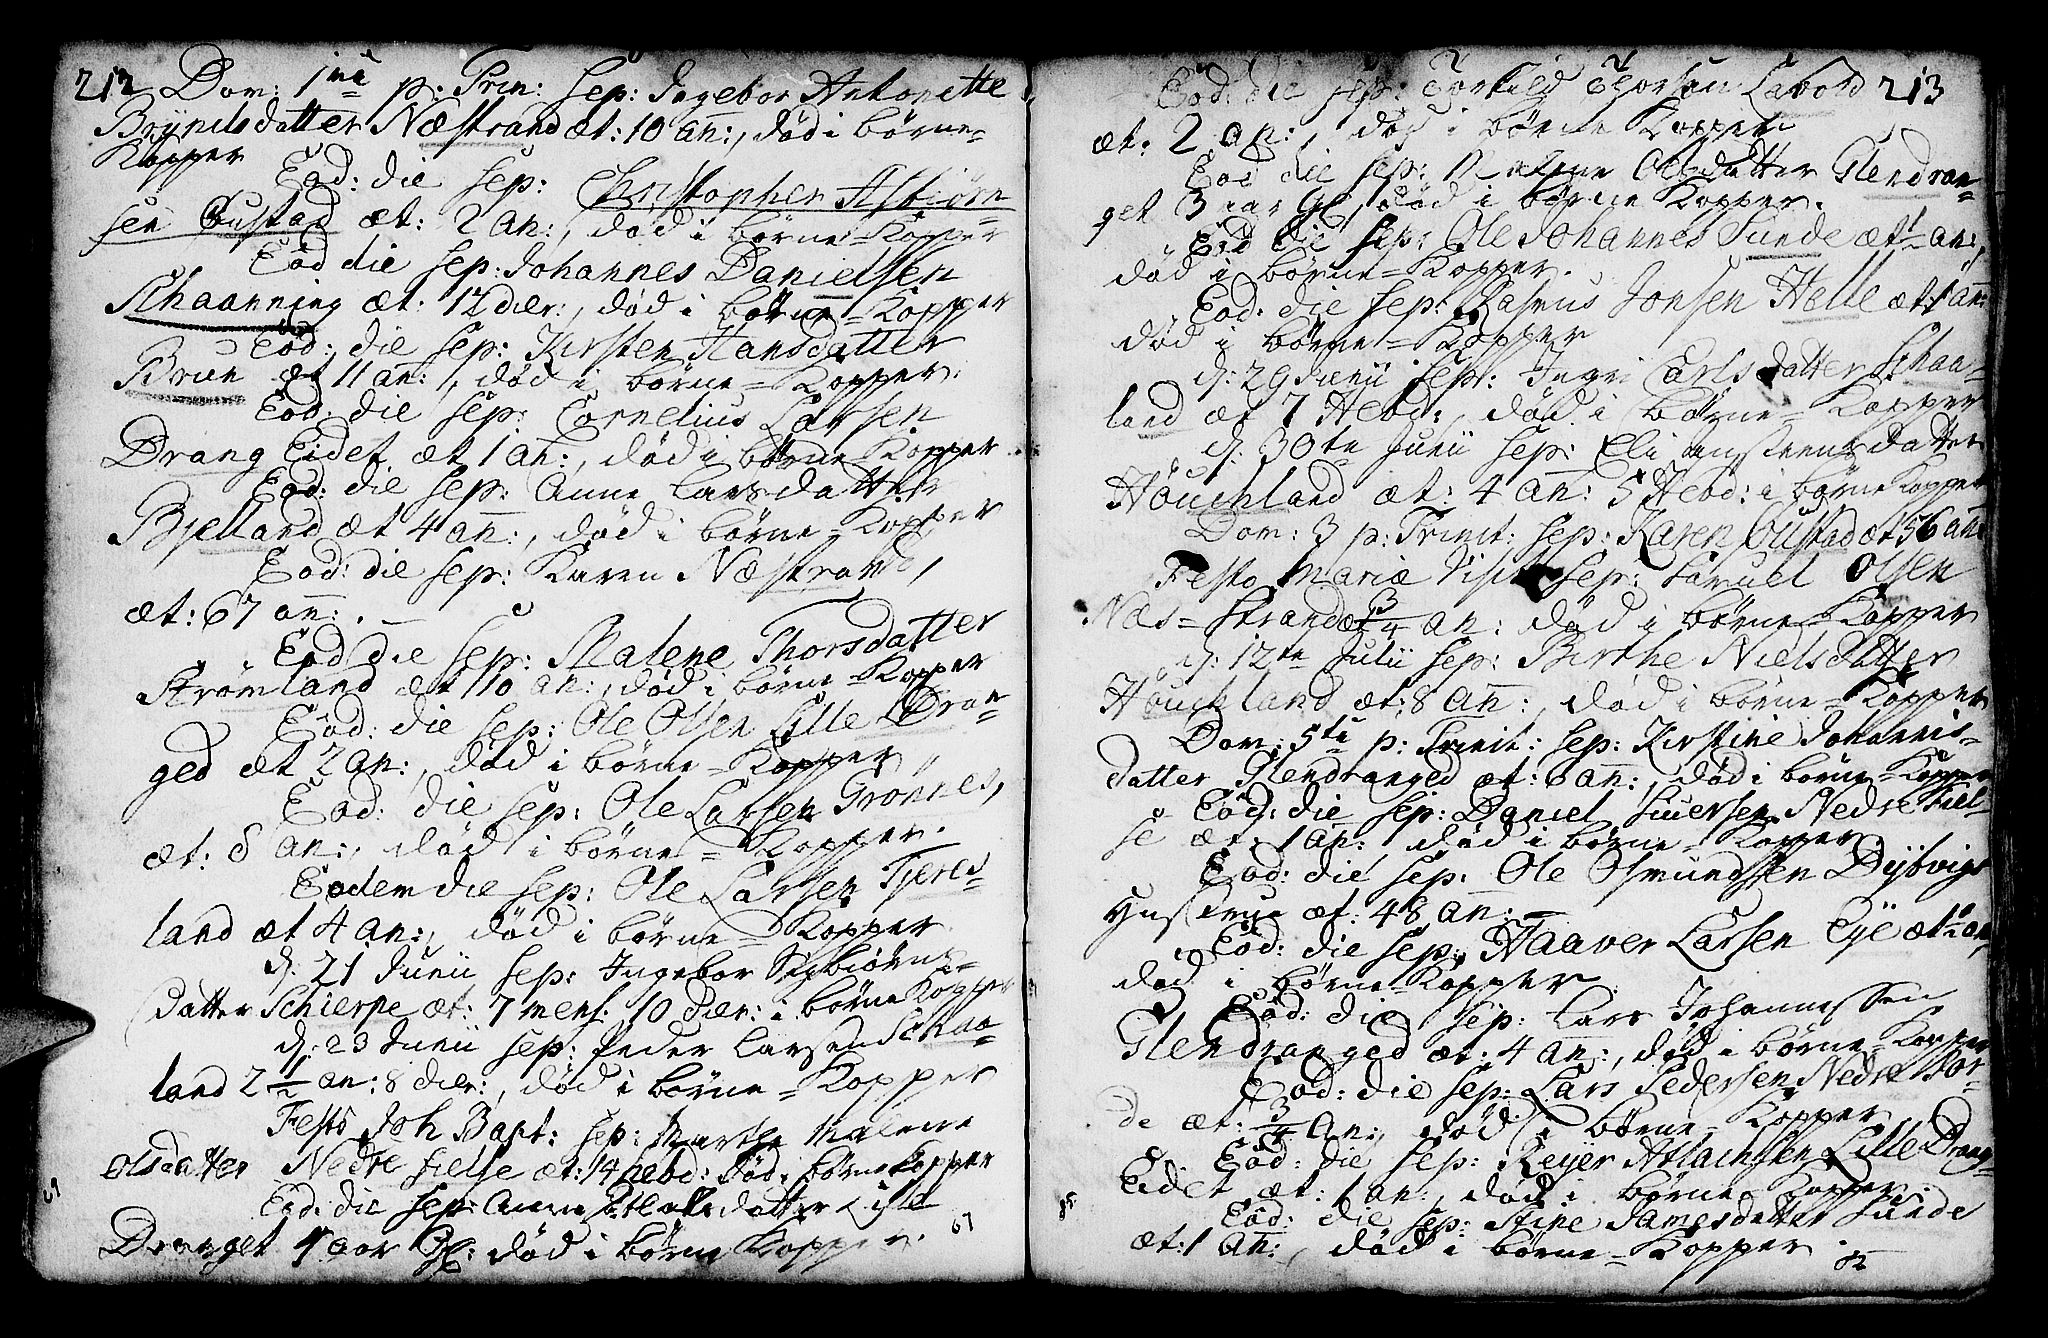 212 Dom: 1ma p: Trin: sep: Ingebor Antonette
Brynilsdatter Næstrand æt: 10 an:, død i børne=
Kopper
Eod: die sep: Christopher Asbiørn-
sen Gustad æt: 2 an:, død i børne=Kopper
Eod die sep: Johannes Danielsen
Schaanning æt: 12 dier:, død i børne=Kopper
Eod: die sep: Kirsten Hansdatter
Brue æt 11 an:, død i børne=Kopper.
Eod: die sep: Cornelius Larsen
Drang Eidet æt 1 an:, død i børne Kopper
Eod: die sep: Anne Larsdatter
Bjelland æt 4 an:, død i børne=Kopper
Eod: die sep: Karen Næstrand,
æt: 67 an:.
Eod die sep: Malene Thorsdatter
Strømland æt 10 an:, død i børne=Kopper
Eod: die sep: Ole Olsen Lille Dran-
ged æt 2 an:, død i børne=Kopper
Eod: die sep: Ole Larsen Grønnes,
æt: 8 an:, død i børne=Kopper.
Eodem die sep: Ole Larsen Tjeres-
land æt 4 an:, død i børne=Kopper
d: 21 Junii sep: Ingebor Sigbiørns-
datter Schierpe æt: 7 mens: 10 dier: i børne Kopper
d: 23 Junii sep: Peder Larsen Schaa-
land 2 1/2 an: 8 dier:, død i børne=Kopper
Festo Joh Bapt: sep: Marthe Malene
Olsdatter Nedre Fielse æt: 14 hebd: død i børne Kopper
Eod: die sep: Anne datter Lille
Dranget 4 aar Gl: død i børne Kopper. 67
Eod: die sep: Torkild Thorsen Lavold 213
æt: 2 an:, død i børne Kopper
Eod die sep: Malene Olsdatter Glendran-
get 3 aar Gl, død i børne Kopper.
Eod die sep: Ole Johannes Sunde æt 1 an:,
død i børne=Kopper.
Eod: die sep: Rasmus Jonsen Helle æt: 1 an:
død i børne=Kopper
d: 29 Junii sep: Ingri Carlsdatter Schaa-
land æt 7 Hebd:, død i børne=Kopper
d: 30te Junii sep: Eli datter
Høuchland æt: 4 an: 5 Hebd: i børne Kopper
Dom: 3 p: Trinit: sep: Karen Gustad æt 56 an:
Festo Mariæ Visit: sep: Samuel Olsen
Næs=Strand æt 3/4 an: død i børne=Kopper
d: 12te Julii sep: Birthe Nielsdatter
Høuchland æt: 8 an:, død i børne=Kopper
Dom: 5te p: Trinit: sep: Kirstine Johannis-
datter Glendranged æt: 6 an:, død i børne=Kopper
Eod: die sep: Daniel Siversen Nedre Fiel-
se æt: 1 an: død i børne=Kopper
Eod: die sep: Ole Osmundssen Dybvigs
Hustrue æt: 48 an:
Eod: die sep: Haaver Larsen Eye æt 1 an,
død i børne=Kopper
Eod: die sep: Lars Johannessen
Glendranged æt: 4 an:, død i børne=Kopper
Eod: die sep: Lars Pedersen Nedre Bor-
de æt: 3/4 an:, død i børne Kopper
Eod: die sep: Reyer Atlachsen Lille Drang-
Eidet æt: 1 an:, død i børne Kopper.
85 Eod: die sep: Stine Jamesdatter Sunde
æt: 1 an:, død i børne=Kopper.